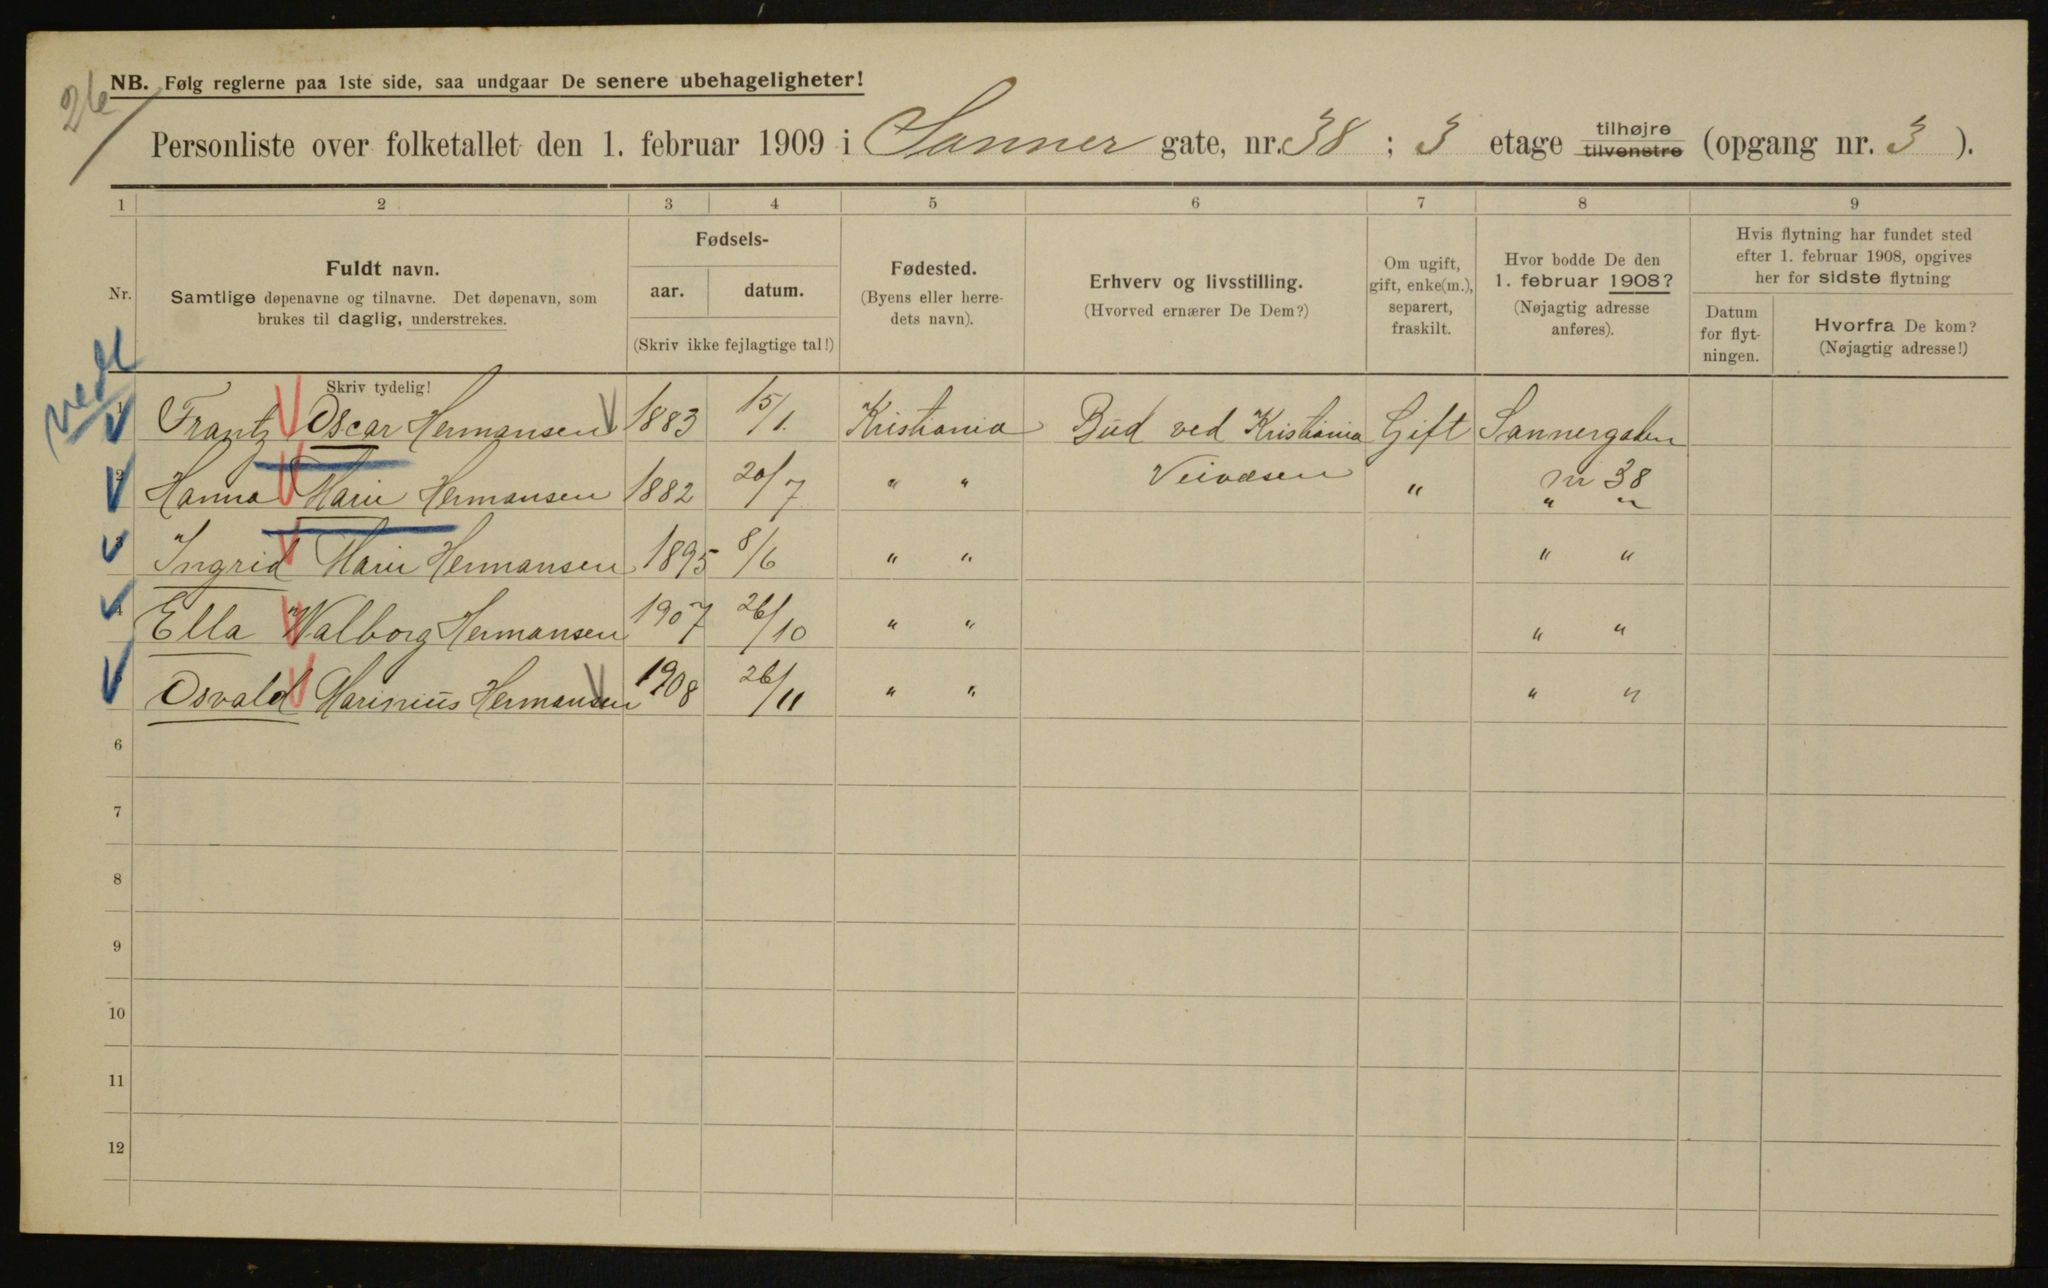 26
NB. Følg reglerne paa 1ste side, saa undgaar De senere ubehageligheter!
Personliste over folketallet den 1. februar 1909 i Sanner gate, nr. 38 ; 3 etage tilhøjre tilvenstre (opgang nr. 3 ).
1 2 3 4 5 6 7 8 9
Nr.
Fuldt navn.
Samtlige døpenavne og tilnavne. Det døpenavn, som
brukes til daglig, understrekes.
Skriv tydelig!
Fødsels-
aar. datum.
(Skriv ikke fejlagtige tal!)
Fødested.
(Byens eller herre-
dets navn).
Erhverv og livsstilling.
(Hvorved ernærer De Dem?)
Om ugift,
gift, enke(m.),
separert,
fraskilt.
Hvor bodde De den
1. februar 1908?
(Nøjagtig adresse
anføres).
Hvis flytning har fundet sted
efter 1. februar 1908, opgives
her for sidste flytning
Datum
for flyt-
ningen.
Hvorfra De kom?
(Nøjagtig adresse!)
1 Frantz Oscar Hermansen 1883 15/1. Kristiania Bud ved Kristiania Gift Sannergaden
Veivæsen nr 38
2 Hanna Marie Hermansen 1882 20/7 " " " " "
3 Ingrid Marie Hermansen 1895 8/6 " " " "
4 Ella Walborg Hermansen 1907 26/10 " " " "
5 Osvald Marinius Hermansen 1908 26/11 " " " "
6
7
8
9
10
11
12